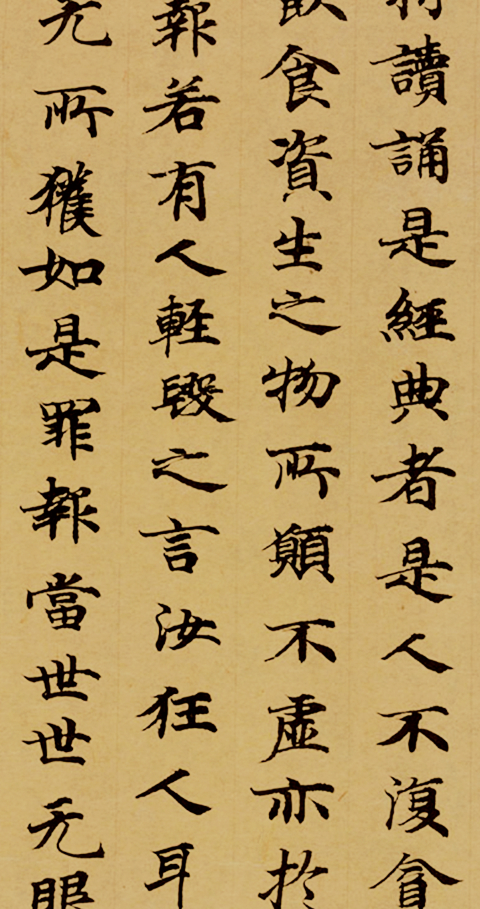 持讀誦是經典者是人不復貪
飲食資生之物所願不虛亦於
報若有人軽毀之言汝狂人耳
无所獲如是罪報當世世无眼